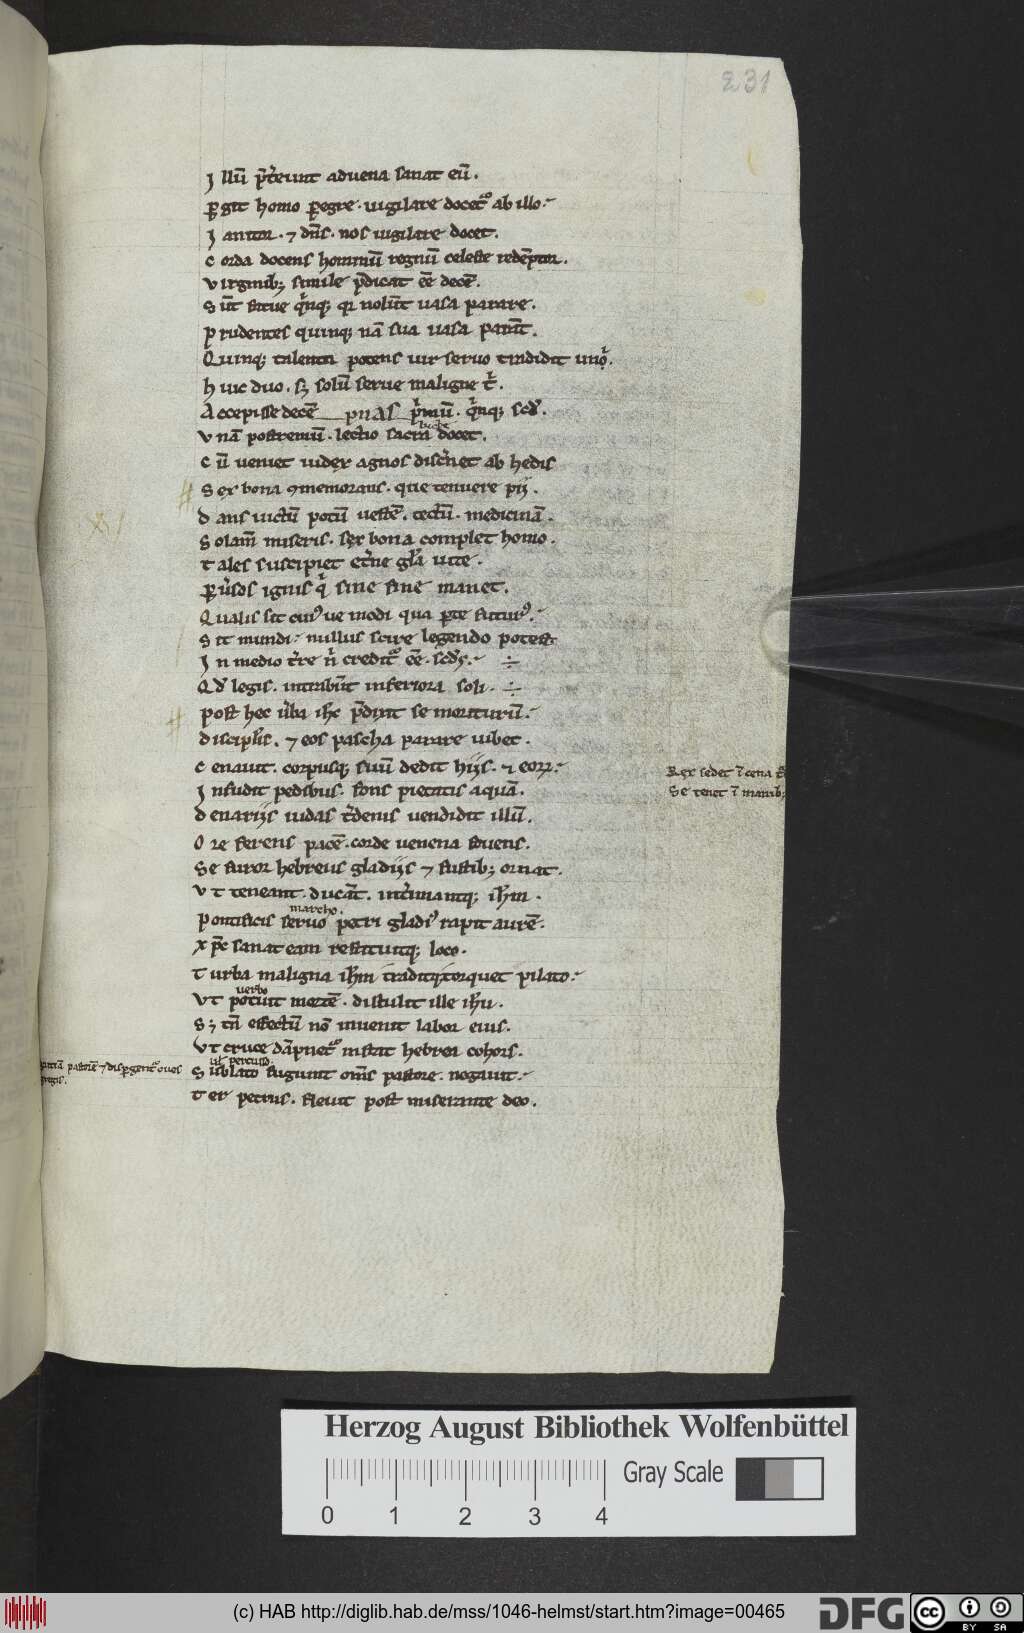 231
J llū p̄t̄eunt aduena sanat eū.
ꝑgit homo ꝑegre. uigilare docet᷑ ab illo.
J anitor. ⁊ dn̄s. nos uigilare docet.
C orda docens hominū regnū celeste redēptor.
V irginibꝫ simile p̄dicat eē decē.
S ūt fatue qͥnqꝫ qͥ nolūt uasa parare.
P rudentes quinqꝫ nā sua uasa parāt.
Q uinqꝫ talenta potens uir seruo tradidit uni.
h uic duo. sꝫ solū serue maligne tͥ.
A ccepisse decē pͥmū. qͥnqꝫ scd̄.
V nā postremū. lectio sacra docet.
C ū ueniet iudex agnos discͥnet ab hedis
S ex bona ꝯmemorans. que tenuere pij.
D ans uictū potū uestē. tectū. medicinā.
S olam̄ miseris. sex bona complet homo.
T ales suscipiet et̄ne gl̄a uite.
ꝑ ignis qͥ sine fine manet.
Q ualis sit modi qua ꝑte futurꝰ.
S it mundi. nullus scire legendo potest
J n medio t̄re credit᷑ eē.
Qd̄ legis. intrabūt inferiora soli.
P ost hec ūba ih̄c p̄dixit se moriturū.
D iscipl̄is. ⁊ eos pascha parare iubet.
C enauit. corpusqꝫ suū dedit hijs. ⁊ eoꝝ.
J nfudit pedibus. fons pietatis aquā.
D enarijs iudas t̄denis uendidit illū.
O re ferens pacē. corde uenena fouens.
S e furor hebreus gladijs ⁊ fustibꝫ ornat.
V t teneant. ducāt. intͥmantqꝫ ih̄m.
marcho.
P ontificis seruo petri gladiꝰ rapit aurē.
X pc̄ sanat eam restituitqꝫ loco.
T urba maligna ih̄m tradit torquet pilato.
uerbo
V t potuit mortē. distulit ille ih̄u.
Sꝫ tn̄ effectū nō inuenit labor eius.
V t cruce dāpnet᷑ instat hebrea cohors.
ul̄ percusso
S ublato fugiunt om̄s pastore. negauit.
T er petrus. fleuit post miserante deo.
Rex sedet ī cena
Se tenet ī manibꝫ
pastorē ⁊ disꝑgent᷑ oues
gregis.
Herzog August Bibliothek Wolfenbüttel
Gray Scale
0 1 2 3 4
(c) HAB http://diglib.hab.de/mss/1046-helmst/start.htm?image=00465
DFG
cc BY SA